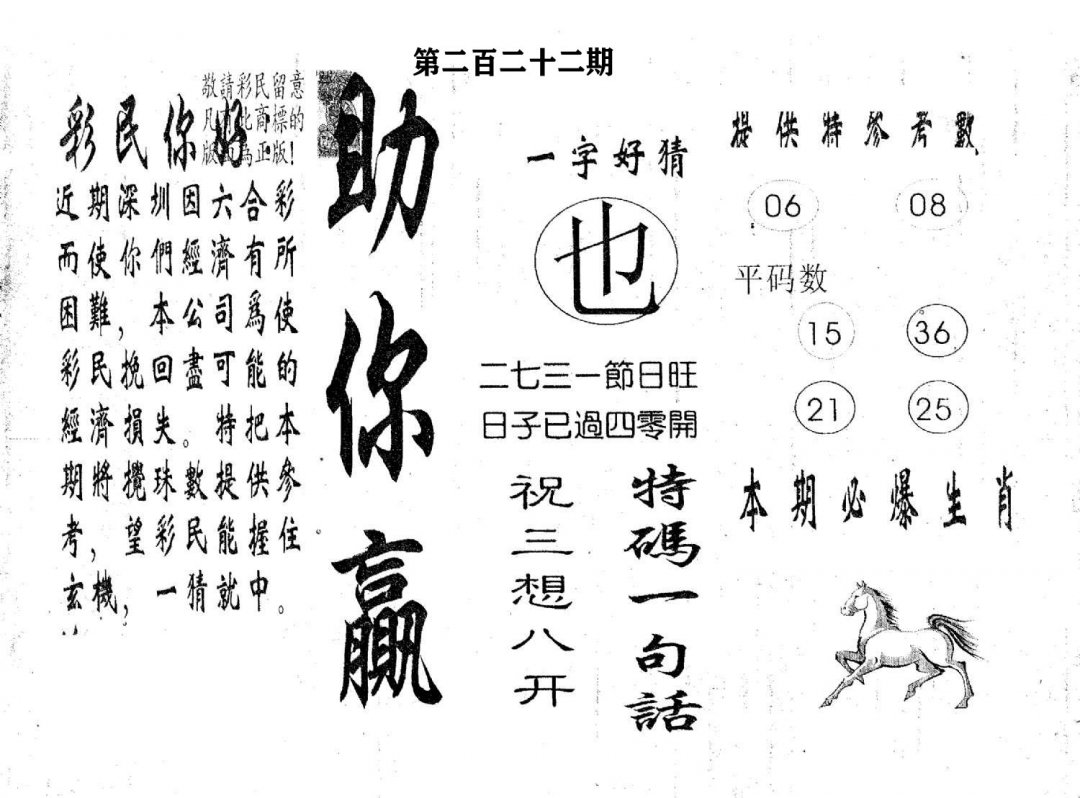 第二百二十二期
敬請彩民留意
凡 此商標的
版 為正版!
彩民你好
近期深圳因六合彩
而使你們經濟有所
困難，本公司爲使
彩民挽回盡可能的
經濟損失。特把本
期將攪珠數提供參
考，望彩民能握住
玄機，一猜就中。
助你贏
一字好猜
也
二七三一節日旺
日子已過四零開
特碼一句話
祝三想八开
提供特參考數
06 08
平码数
15 36
21 25
本期必爆生肖